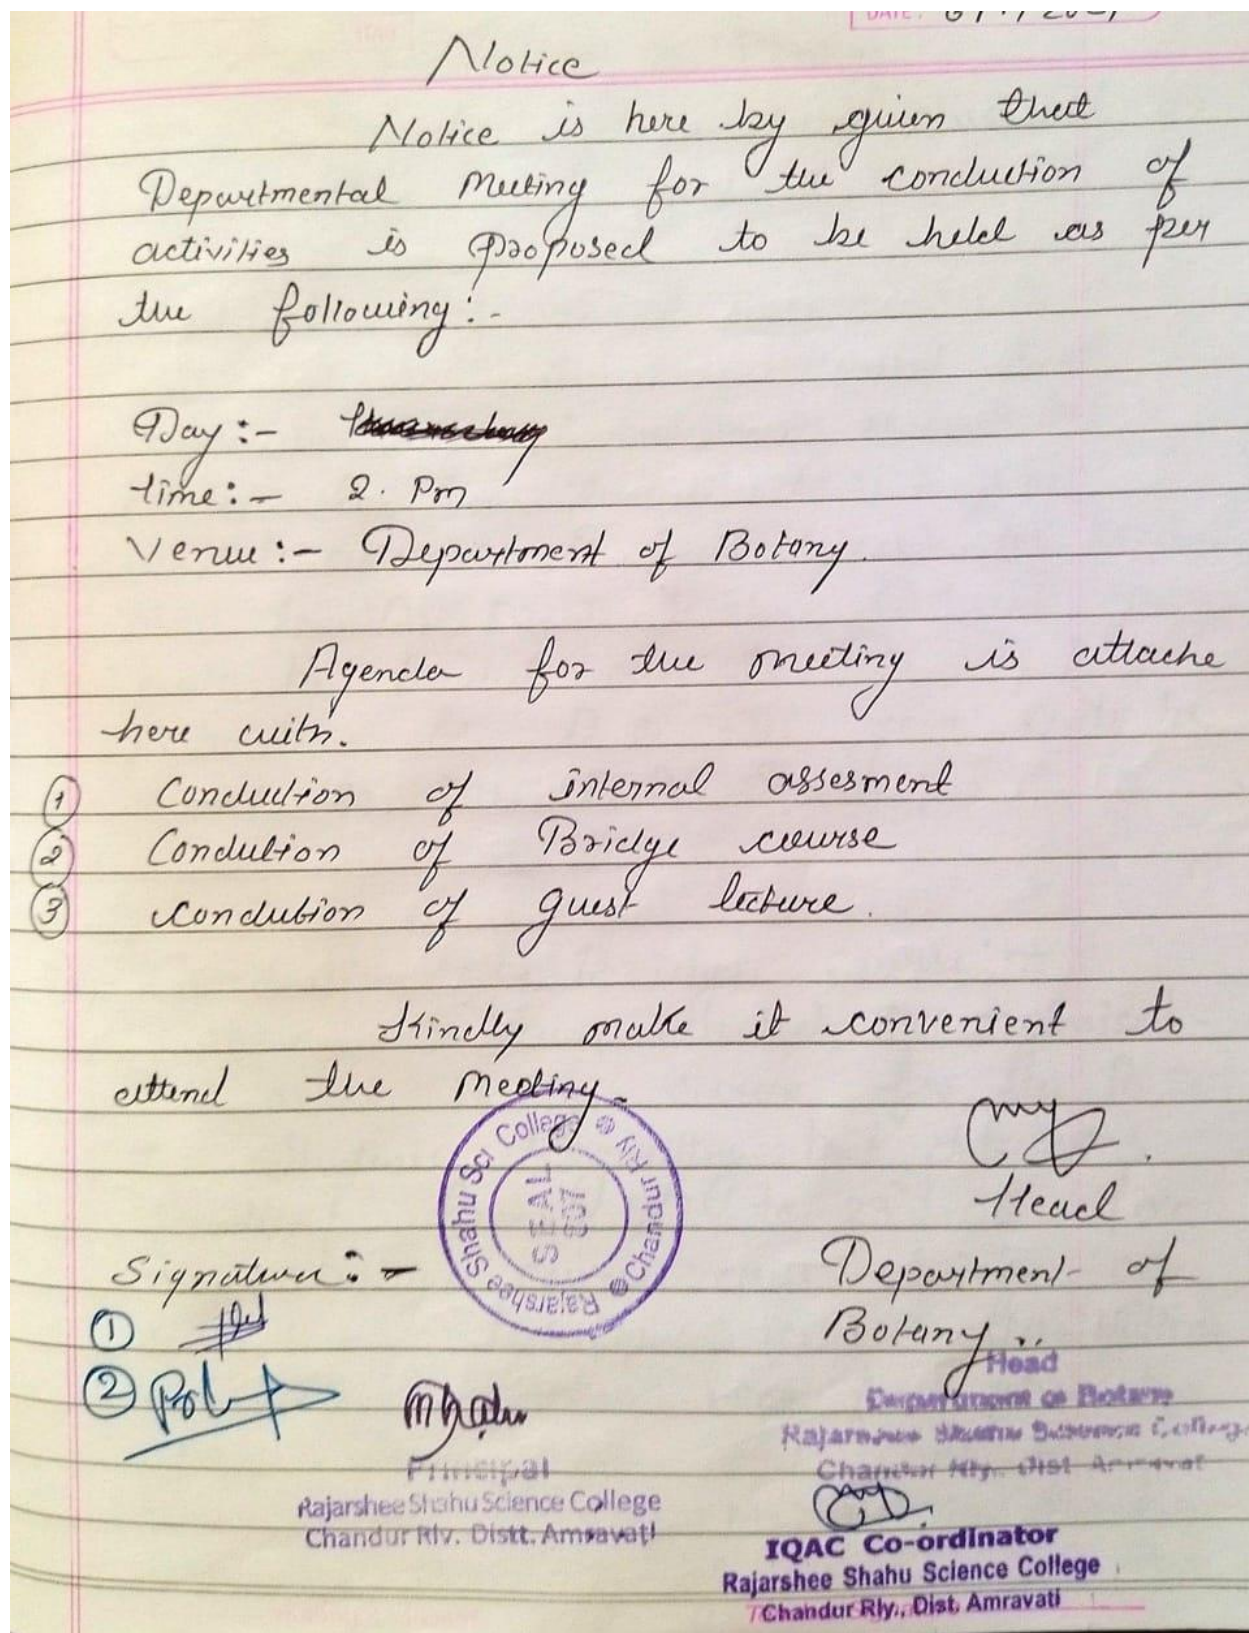 DATE:
Notice
Notice is here by given that
Departmental Meeting for the conduction of
activities is proposed to be held as per
the following:-
Day:-
time:- 2. Pm
Venue:- Department of Botany.
Agenda for the meeting is attache
here with.
1 Conduction of internal assesment
2 Condution of Bridge course
3 condution of guest lecture.
Kindly make it convenient to
attend the Meeting.
Rajarshee Shahu Sci College Chandur Rly
SEAL
Head
Signature:-
Department of
Botany..
1
2
Head
Department of Botany
Rajarshee Shahu Science College
Chandur Rly. Dist Amravati
Principal
Rajarshee Shahu Science College
Chandur Rly. Distt. Amravati
IQAC Co-ordinator
Rajarshee Shahu Science College
Chandur Rly., Dist. Amravati